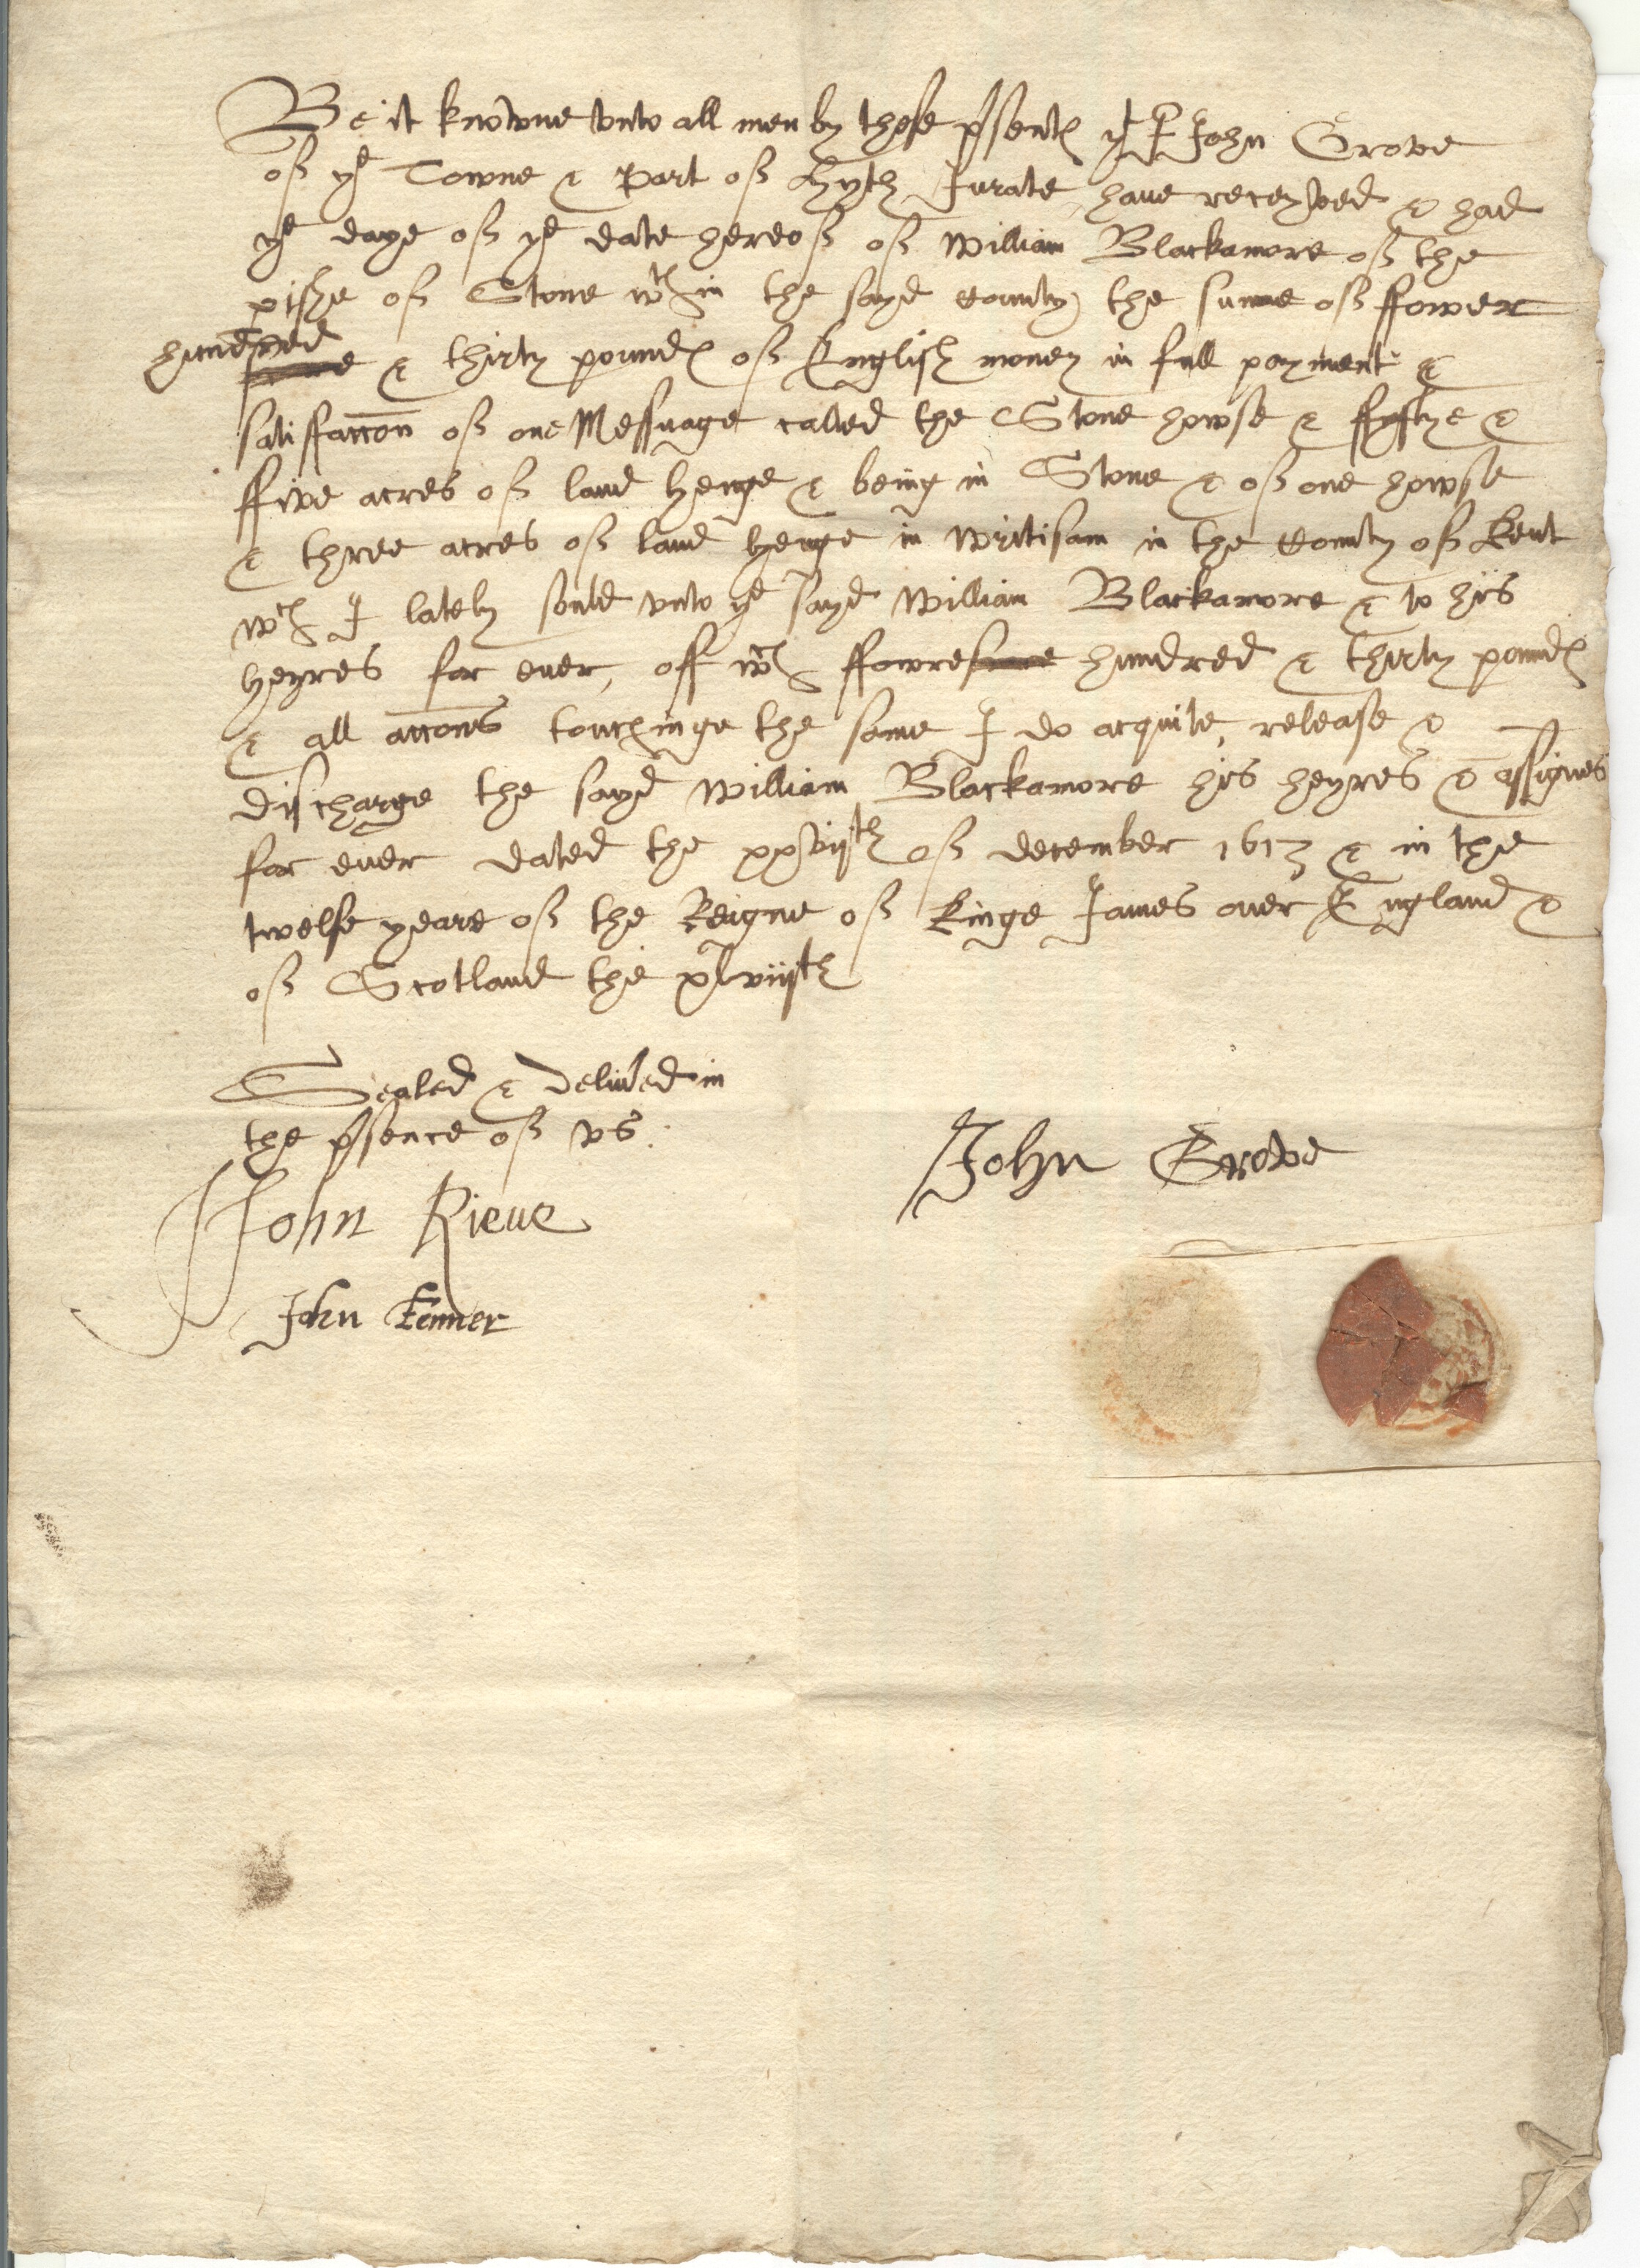 Be it knowne vnto all men by these psent yt I John Grove
of ye Towne & Port of Hyth Jurate have receyved & had
ye daye of ye date hereof of William Blackamore of the
pishe of Stone wthin the sayd County the summe of ffower
hundred & thirty pound of English money in full payment &
satisfaccon of one Messuage called the Stone howse & &
ffive acres of land lyenge & being in Stone & of one howse
& three acres of land lyenge in Writisam in the County of Kent
wch I lately sould vnto ye sayd William Blackamore & to his
heyres for ever, off wch ffowre hundred & thirty pound
& all accons touchinge the same I do acquite, release &
discharge the sayd William Blackamore his heyres & assignes
for ever dated the xxviijth of december 1613 & in the
twelfe yeare of the Reigne of Kinge James over England &
of Scotland the xlviijth
Sealed & delived in
the psence of vs.
John Grove
John Rieue
John